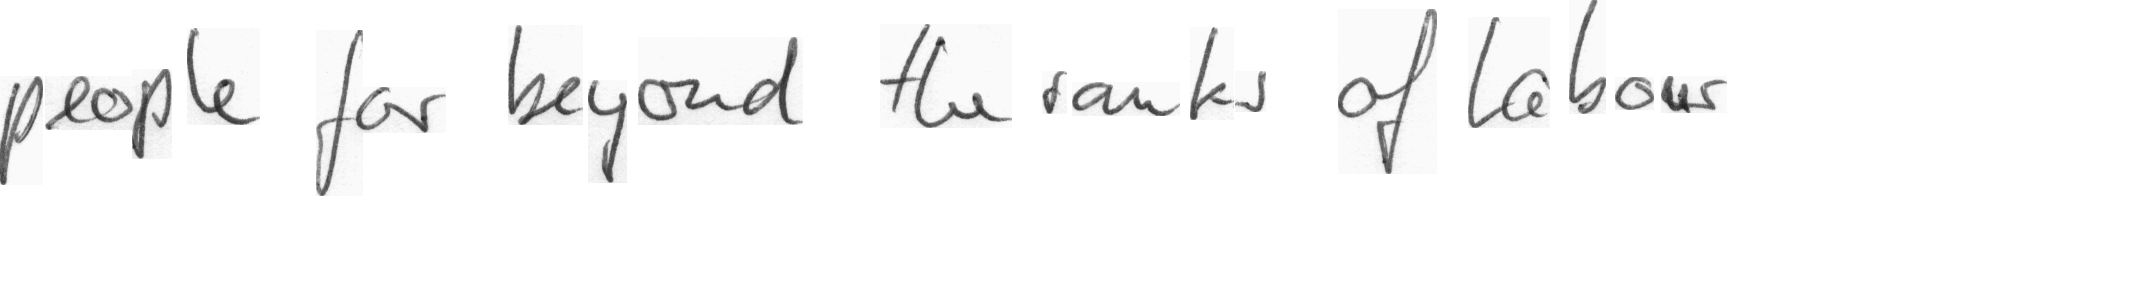 people far beyond the ranks of Labour